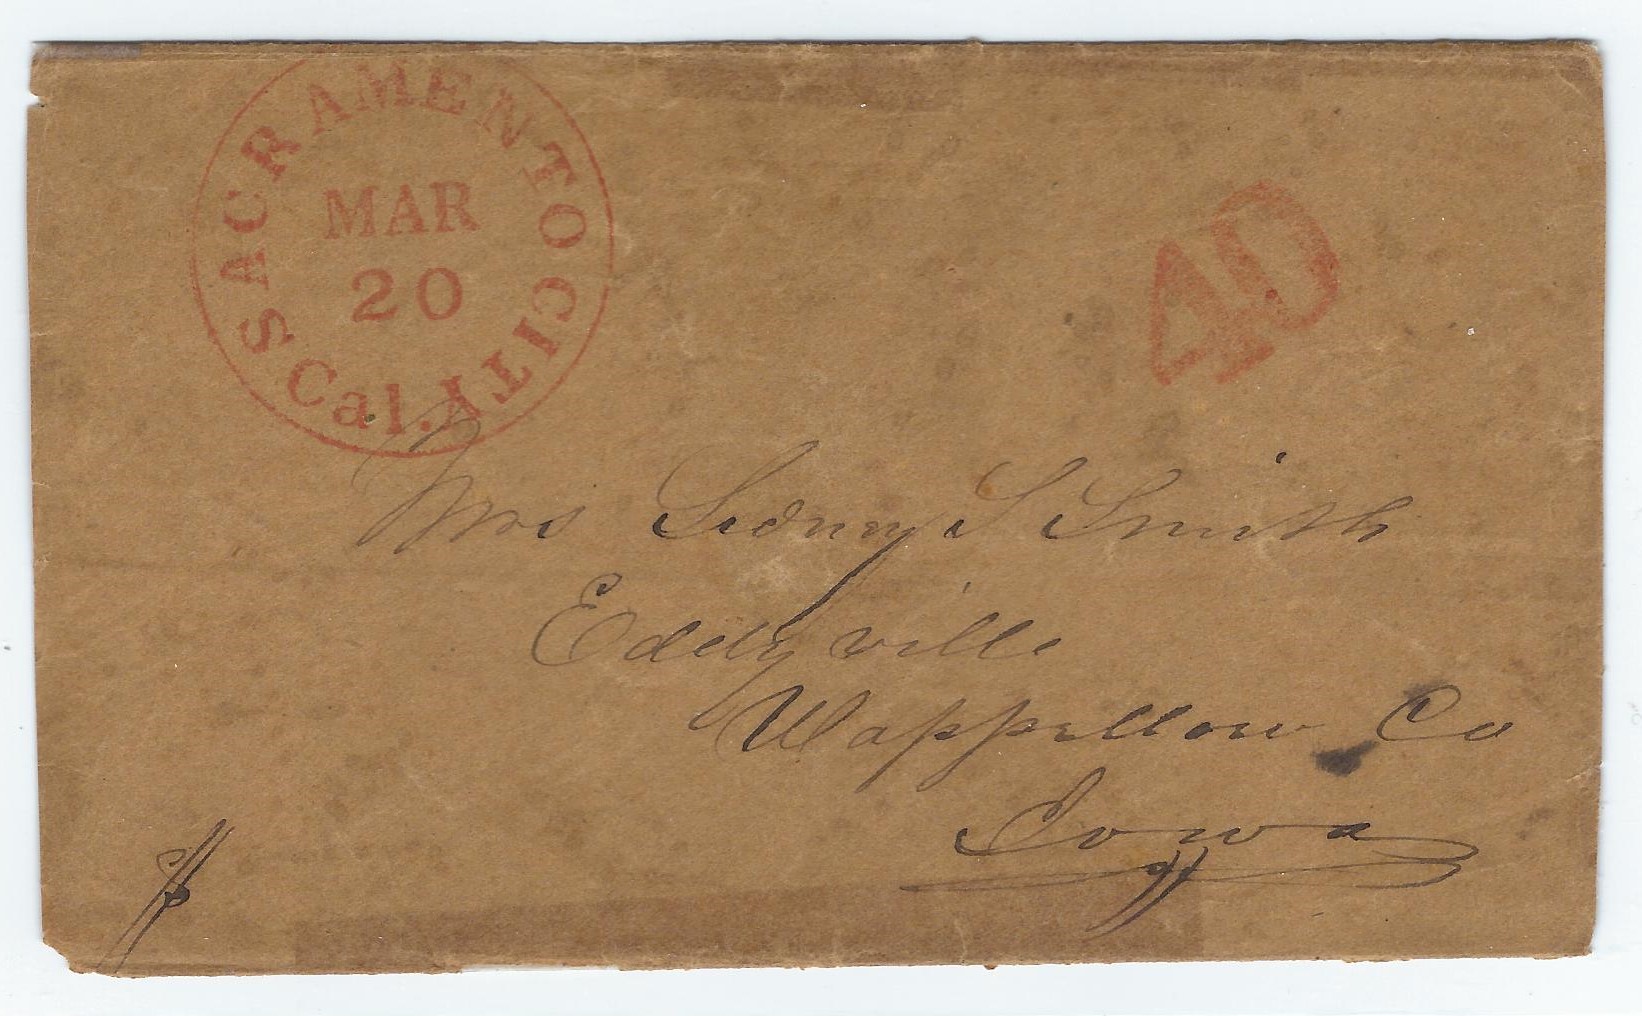 SACRAMENTO CITY Cal.
MAR
20
40
Mrs Sidney S Smith
Eddyville
Wappellow Co
Iowa